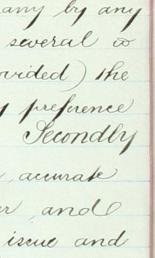 any by any
several or
ovided) the
preference
Secondly
accurate
and
issue and